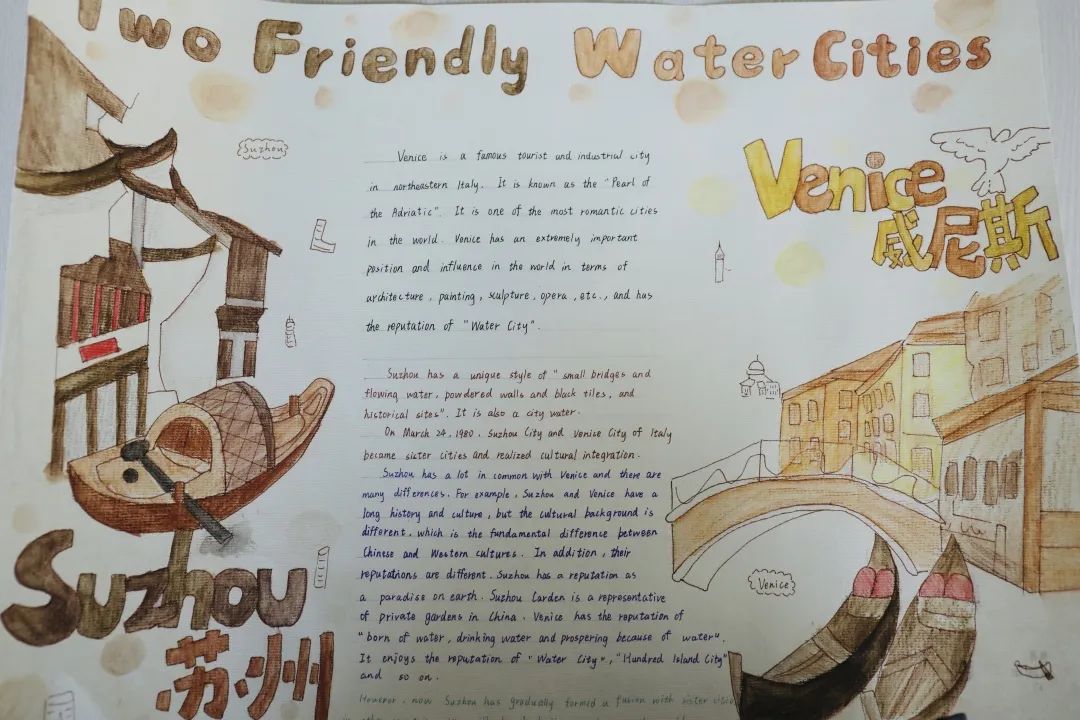 Two Friendly Water Cities
Suzhou
Venice
威尼斯
Venice is a famous tourist and industrial city
in northeastern Italy. It is known as the "Pearl of
the Adriatic". It is one of the most romantic cities
in the world. Venice has an extremely important
position and influence in the world in terms of
architecture, painting, sculpture, opera, etc., and has
the reputation of "Water City".
Suzhou has a unique style of "small bridges and
flowing water, powdered walls and black tiles, and
historical sites". It is also a city water.
On March 24, 1980, Suzhou City and Venice City of Italy
became sister cities and realized cultural integration.
Suzhou has a lot in common with Venice and there are
many differences. For example, Suzhou and Venice have a
long history and culture, but the cultural background is
different, which is the fundamental difference between
Chinese and Western cultures. In addition, their
reputations are different. Suzhou has a reputation as
a paradise on earth. Suzhou Garden is a representative
of private gardens in China. Venice has the reputation of
"born of water, drinking water and prospering because of water".
It enjoys the reputation of "Water City", "Hundred Island City"
and so on.
However, now Suzhou has gradually formed a fusion with sister
Suzhou
苏州
Venice